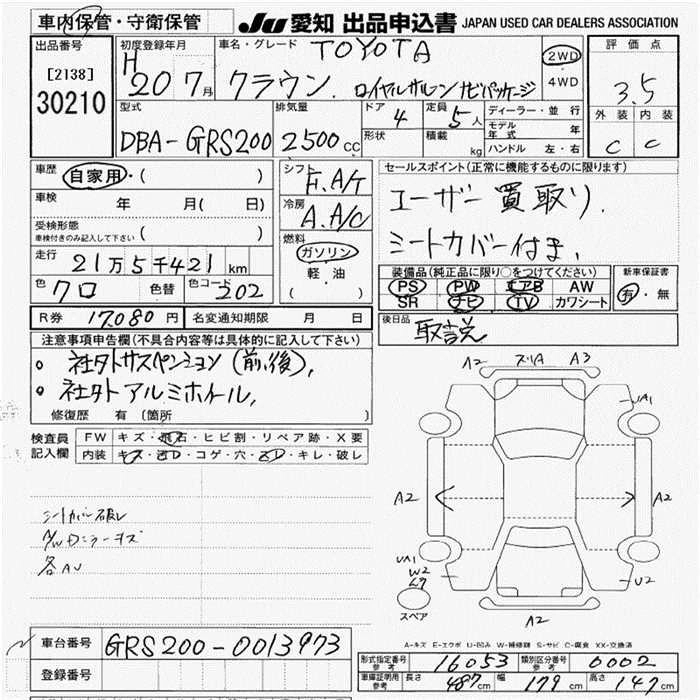 車内保管・守衛保管
JU 愛知 出品申込書 JAPAN USED CAR DEALERS ASSOCIATION
出品番号
[2138]
30210
初度登録年月
H 20 7月
車名・グレード TOYOTA
クラウン. ロイヤルサルーン ナビパッケージ
2WD
4WD
評価点
3.5
外装 内装
C C
型式
DBA-GRS200
排気量
2500cc
ドア 4
形状
定員 5人
積載 kg
ディーラー・並行
モデル年式 年
ハンドル 左・右
車歴 自家用・( )
車検 年 月( 日)
受検形態
車検付きのみ記入して下さい ( )
走行 21万5千421km
色 クロ 色替 色コード 202
シフト
F.A/T
冷房
A.A/C
燃料
ガソリン
軽・油
( )
セールスポイント(正常に機能するものに限ります)
ユーザー買取り.
シートカバー付き.
装備品(純正品に限り○をつけてください)
PS PW エアB AW
SR ナビ TV カワシート
新車保証書
有・無
R券 17,080円 名変通知期限 月 日
後日品 取説
注意事項申告欄(不具合内容等は具体的に記入して下さい)
○ 社外サスペンション(前,後),
○ 社外アルミホイール,
修復歴 有 (箇所 )
検査員記入欄
FW キズ・飛石・ヒビ割・リペア跡・X要
内装 キズ・ヨゴレ・コゲ・穴・スレ・キレ・破レ
シートカバー破レ
各AU
A2 スリA A3
UA1
A2 A2
UA1
W2
U2
A2
スペア
A-キズ E-エクボ U-凹み W-補修跡 S-サビ C-腐食 XX-交換済
車台番号 GRS200-0013973
登録番号
型式指定番号 参考 16053 類別区分番号 参考 0002
車庫証明用 参考 長さ 487cm 幅 179cm 高さ 147cm